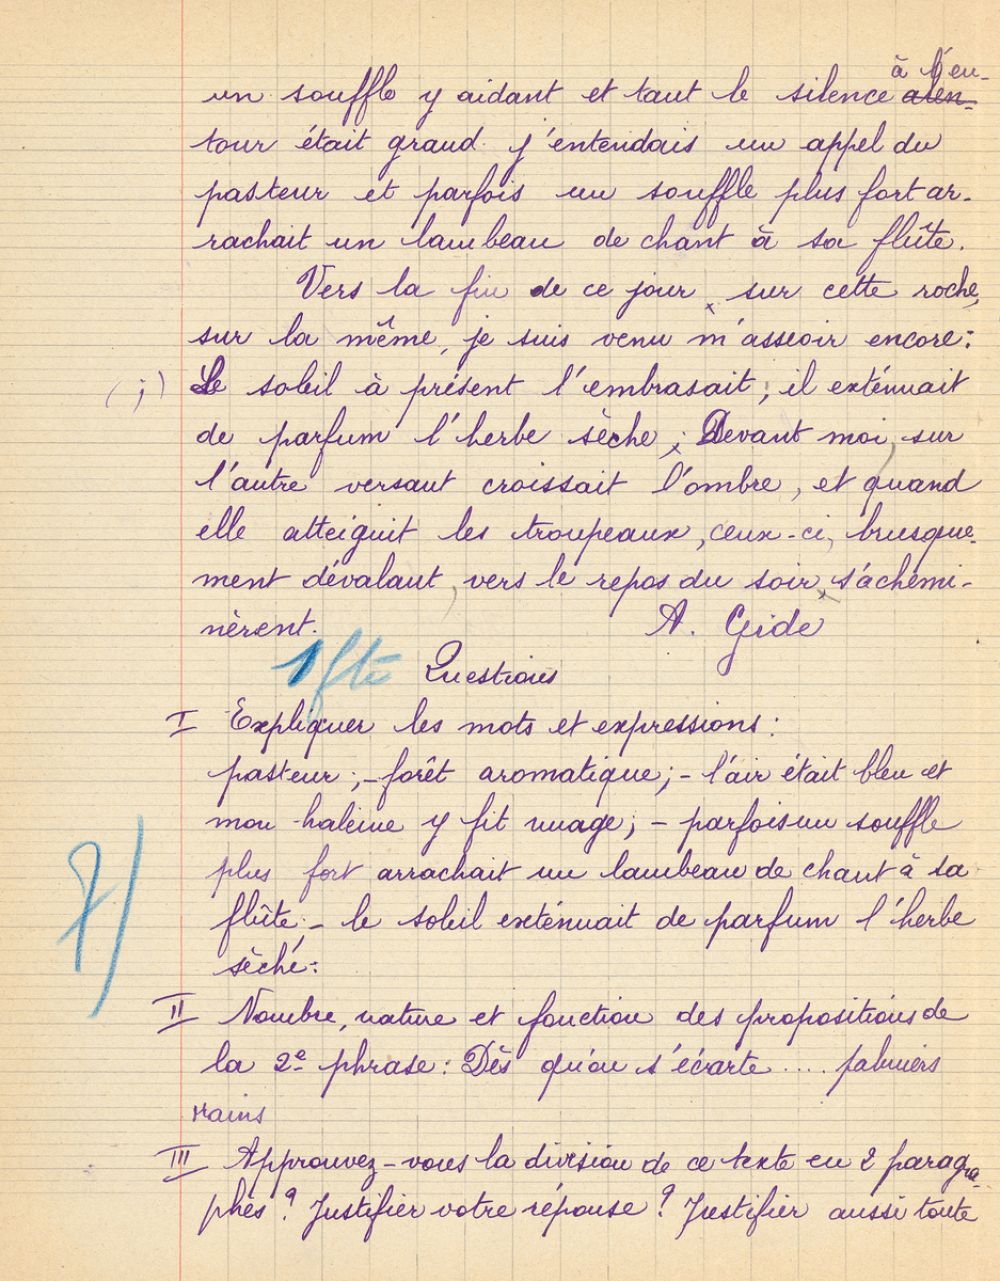 à l'en-
un souffle y aidant et tant le silence alen-
tour était grand j'entendais un appel du
pasteur et parfois un souffle plus fort ar-
rachait un lambeau de chant à sa flûte.
Vers la fin de ce jour, sur cette roche,
sur la même, je suis venu m'asseoir encore:
(;) Le soleil à présent l'embrasait; il exténuait
de parfum l'herbe sèche; Devant moi, sur
l'autre versant croissait l'ombre, et quand
elle atteignit les troupeaux, ceux-ci, brusque-
ment dévalant, vers le repos du soir, s'achemi-
nèrent. A. Gide
1 fte Questions
I Expliquer les mots et expressions:
pasteur;- forêt aromatique;- l'air était bleu et
mon haleine y fit nuage;- parfois un souffle
plus fort arrachait un lambeau de chant à sa
flûte;- le soleil exténuait de parfum l'herbe
séché:
7/
II Nombre, nature et fonction des propositions de
la 2e phrase: Dès qu'on s'écarte.... palmiers
nains
III Approuvez-vous la division de ce texte en 2 paragra-
phes? Justifier votre réponse? Justifier aussi toute